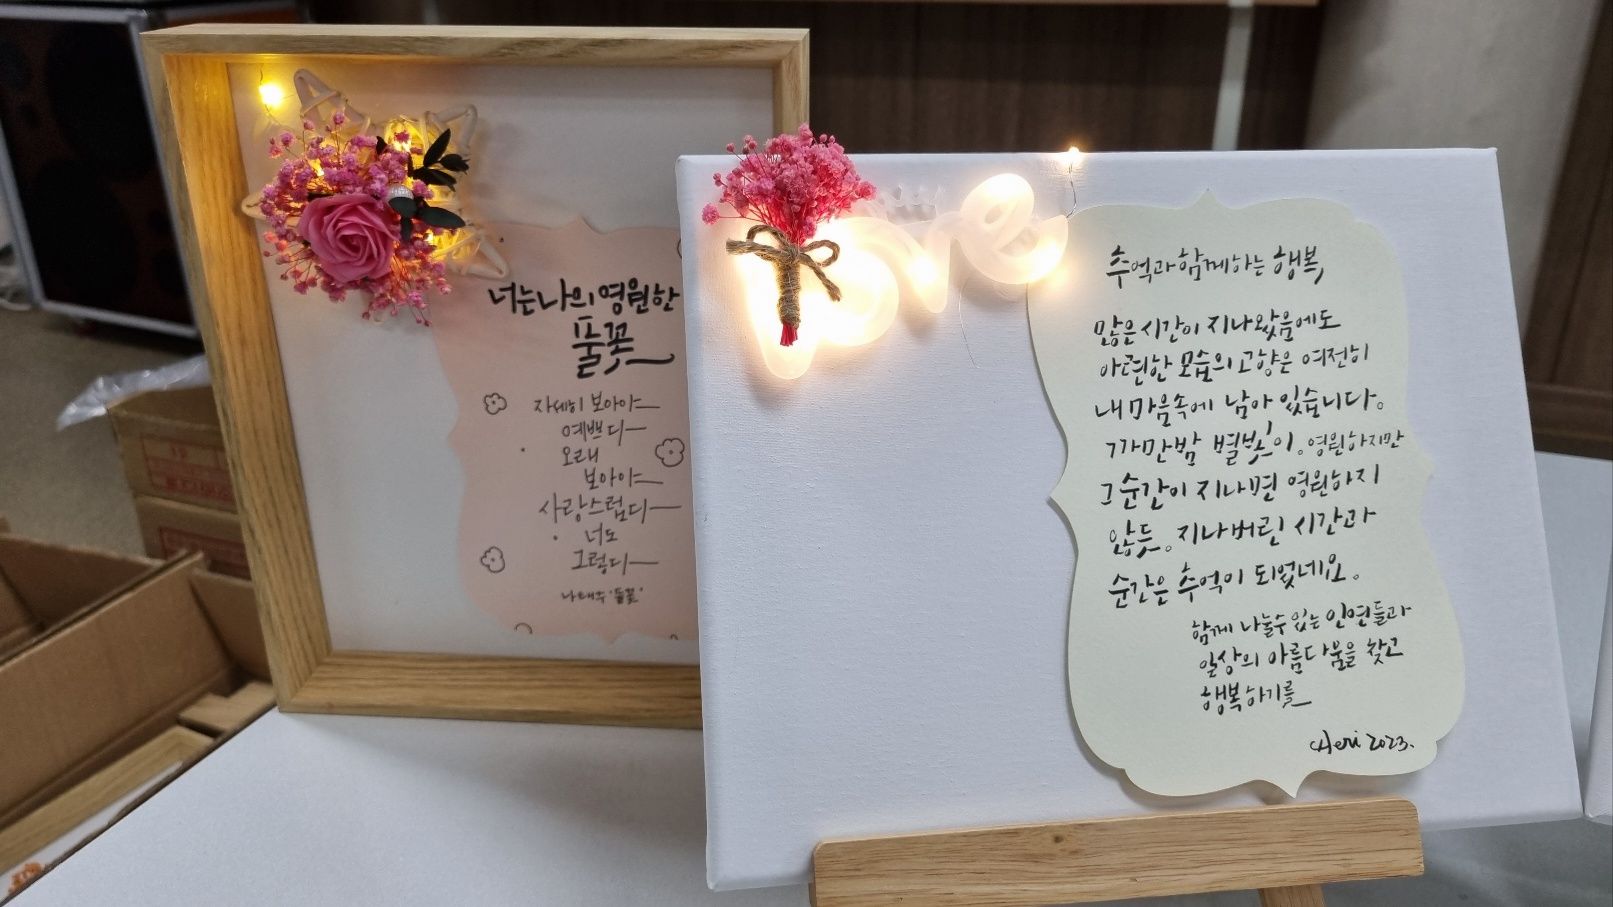 너는 나의 영원한
풀꽃
자세히 보아야
예쁘다
오래
보아야
사랑스럽다
너도
그렇다
나태주 '풀꽃'
love
추억과 함께하는 행복
많은 시간이 지나왔음에도
아련한 모습의 고향은 여전히
내 마음속에 남아 있습니다.
까만밤 별빛이. 영원하지만
그 순간이 지나면 영원하지
않듯. 지나버린 시간과
순간은 추억이 되었네요.
함께 나눌수 있는 인연들과
일상의 아름다움을 찾고
행복하기를
Aeri 2023.